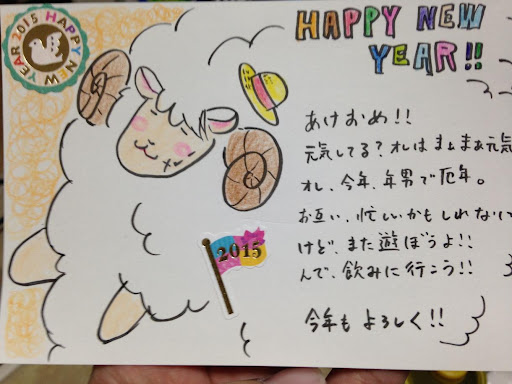 HAPPY NEW YEAR 2015
HAPPY NEW
YEAR!!
あけおめ!!
元気してる?オレはまあまあ元気
オレ、今年、年男で厄年。
お互い、忙しいかもしれない
けど、また遊ぼうよ!!
んで、飲みに行こう!!
今年もよろしく!!
2015